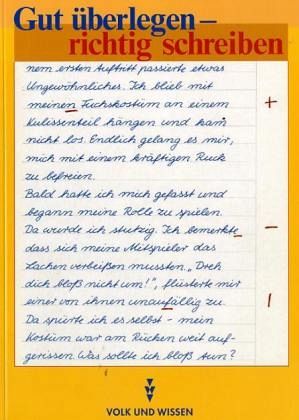 Gut überlegen –
richtig schreiben
nem ersten Auftritt passierte etwas
Ungewöhnliches. Ich blieb mit
meinen Fuchskostüm an einem +
Kulissenteil hängen und kam
nicht los. Endlich gelang es mir,
mich mit einem kräftigen Ruck
zu befreien.
Bald hatte ich mich gefasst und
begann meine Rolle zu spielen.
Da wurde ich stutzig. Ich bemerkte –
dass sich meine Mitspieler das
Lachen verbeißen mussten. „Dreh
dich bloß nicht um!“, flüsterte mir
einer von ihnen unaufällig zu. |
Da spürte ich es selbst – mein
Kostüm war am Rücken weit auf-
gerissen. Was sollte ich bloß tun?
VOLK UND WISSEN